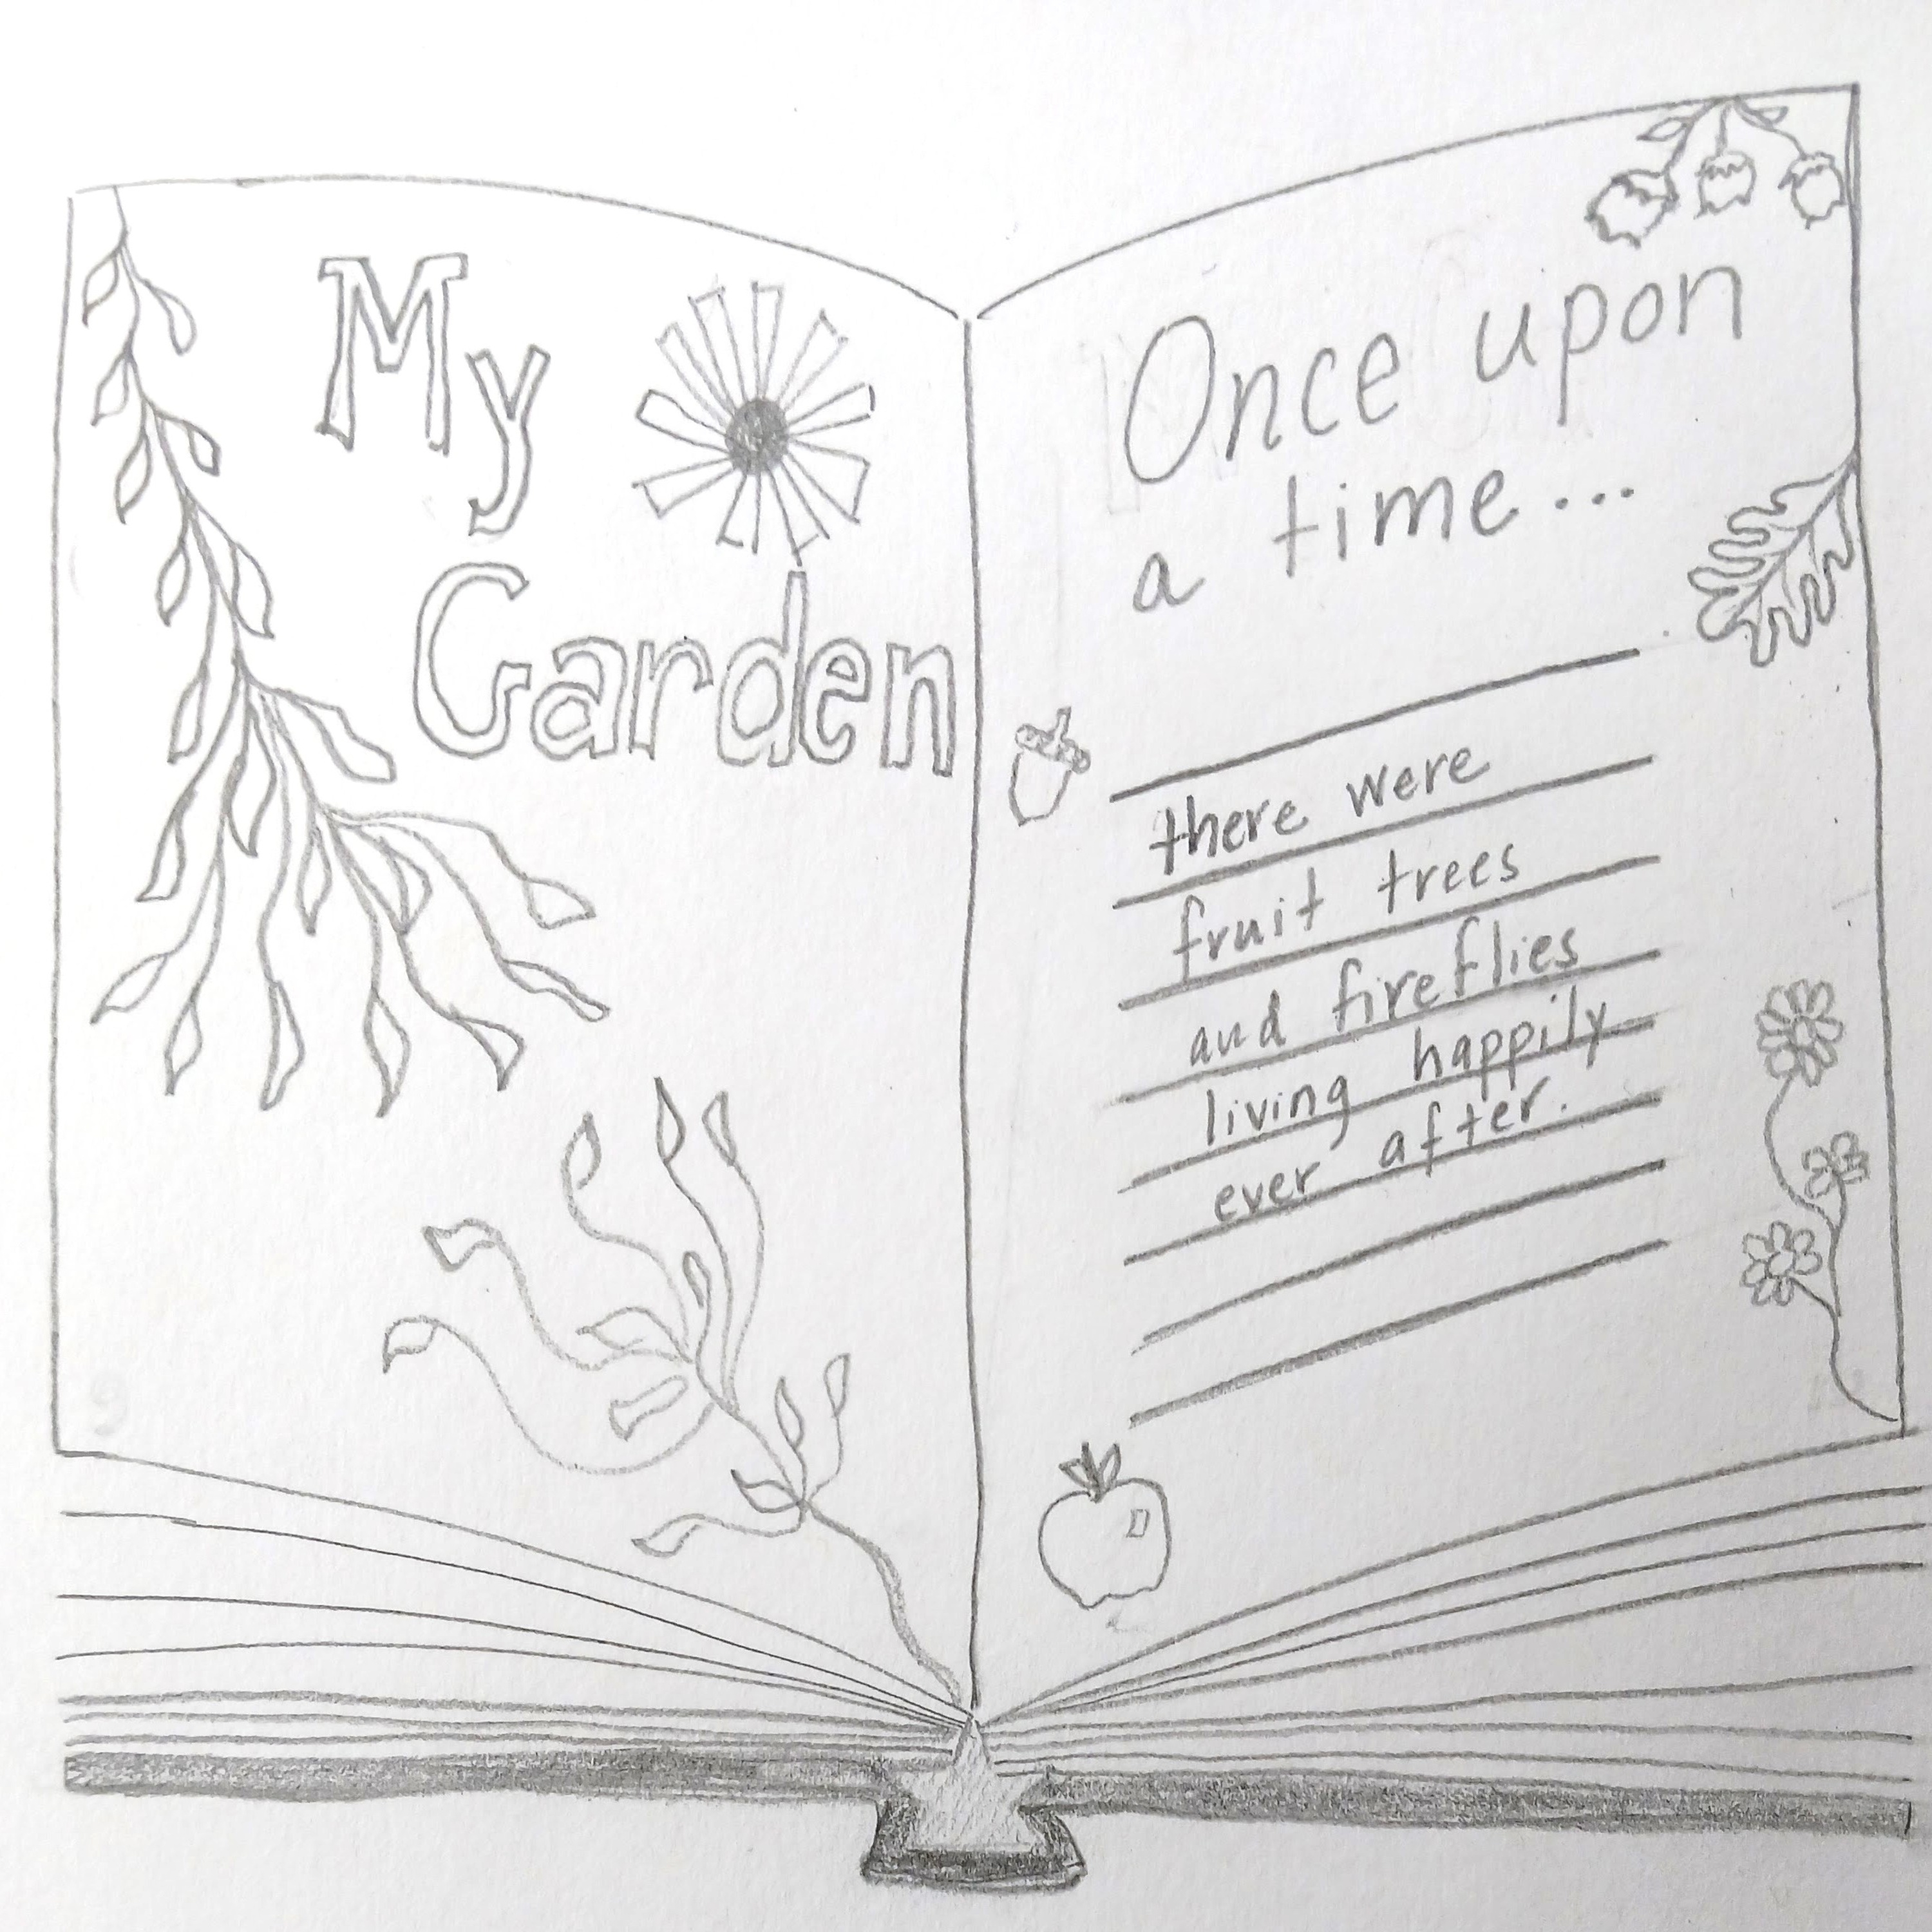 My
Garden
Once upon
a time...
there were
fruit trees
and fireflies
living happily
ever after.